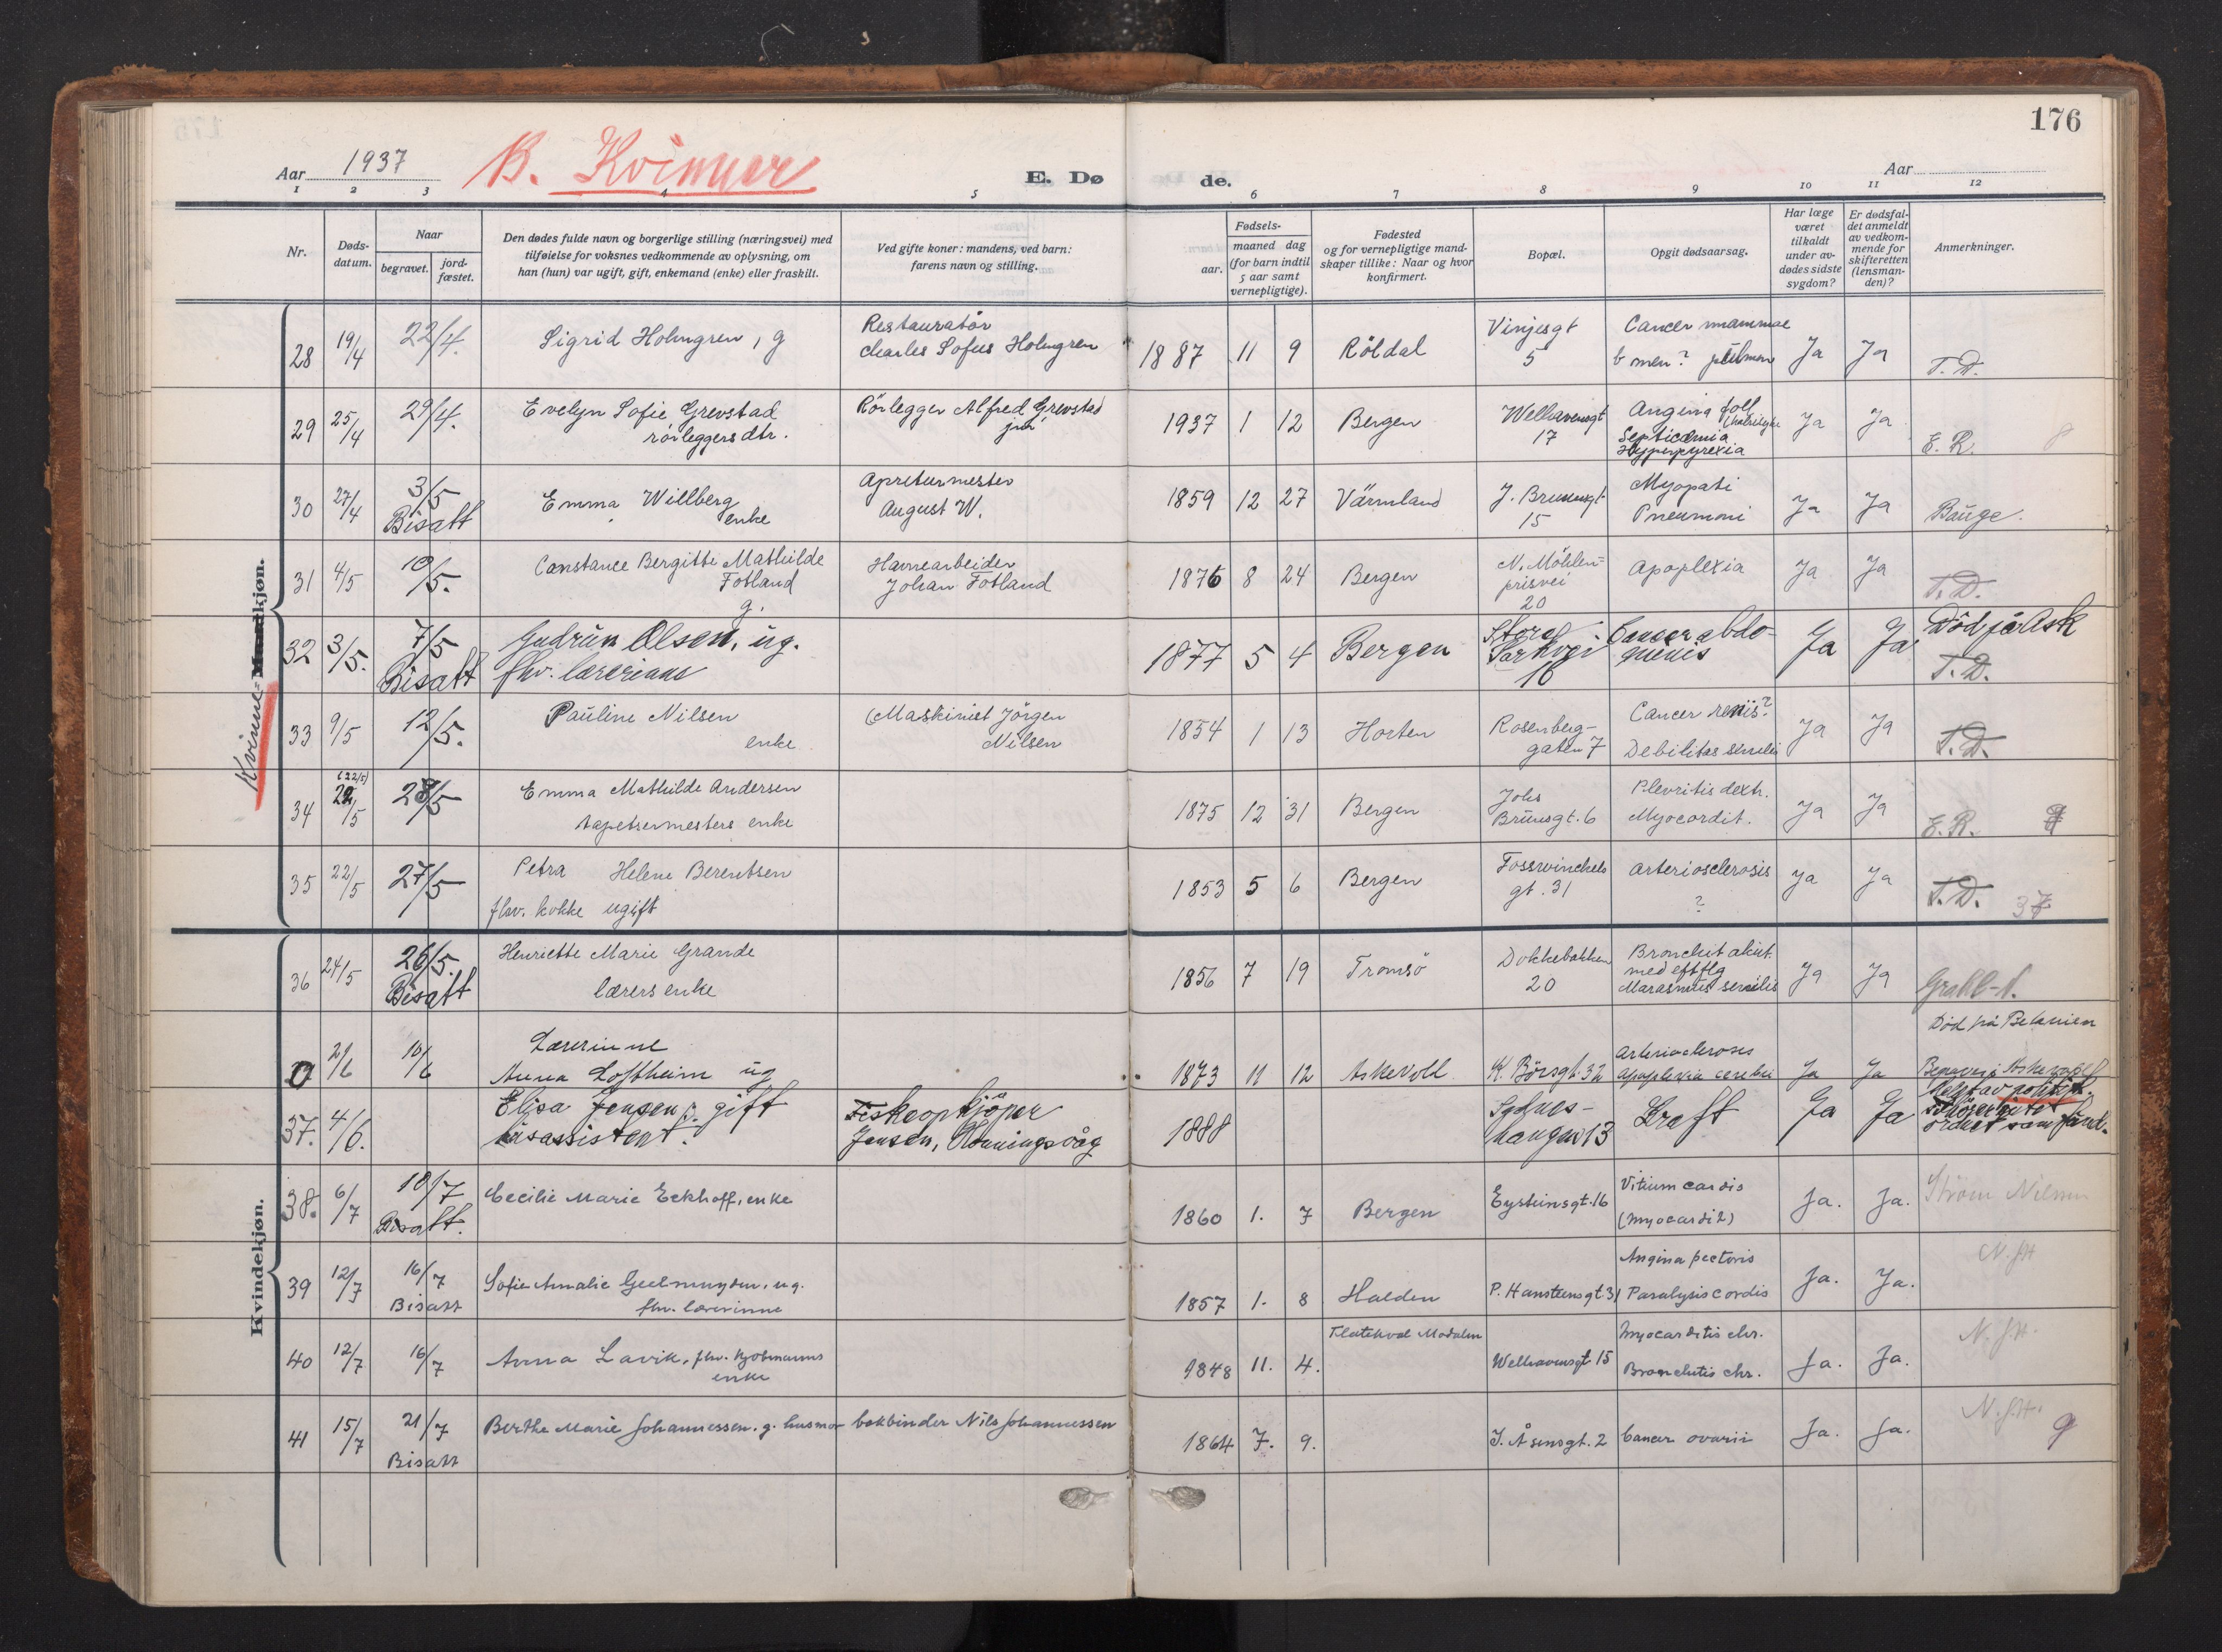 176
Aar 1937
B. Kvinner
E. Døde.
Aar
1 2 3 4 5 6 7 8 9 10 11 12
Nr.
Døds-
datum.
Naar
begravet.
jord-
fæstet.
Den dødes fulde navn og borgerlige stilling (næringsvei) med
tilføielse for voksnes vedkommende av oplysning, om
han (hun) var ugift, gift, enkemand (enke) eller fraskilt.
Ved gifte koner: mandens, ved barn:
farens navn og stilling.
Fødsels-
aar.
maaned dag
(for barn indtil
5 aar samt
vernepligtige).
Fødested
og for vernepligtige mand-
skaper tillike: Naar og hvor
konfirmert.
Bopæl.
Opgit dødsaarsag.
Har læge
været
tilkaldt
under av-
dødes sidste
sygdom?
Er dødsfal-
det anmeldt
av vedkom-
mende for
skifteretten
(lensman-
den)?
Anmerkninger.
Kvinne-Mandkjøn.
28 19/4 22/4. Sigrid Holmgren, g
Restauratør
Charles Sofus Holmgren
1887 11 9 Röldal
Vinjesgt
5
Cancer mammae
men? pulmon
Ja Ja T.D.
29 25/4 29/4. Evelyn Sofie Grevstad
rörleggers dtr.
Rörlegger Alfred Grevstad
jun
1937 1 12 Bergen
Welhavensgt
17
Angina foll
Septicæmia
Hyperpyrexia
Ja Ja E.R. 8
30 27/4 3/5
Bisatt
Emma Willberg
enke
Apreturmester
August W.
1859 12 27 Värmland
J. Brunsgt
15
Myopati
Pneumoni
Ja Ja Bauge.
31 4/5 10/5. Constance Bergitte Mathilde
Fotland
g.
Havnearbeider
Johan Fotland
1876 8 24 Bergen
N. Möhlen-
prisvei
20
Apoplexia
Ja Ja T.D.
32 3/5. 7/5
Bisatt
Gudrun Olsen, ug.
fhv. lærerinne
1877 5 4 Bergen
Store
Parkvei
16
Cancer abdo-
minis
Ja Ja Död på Ask
T.D.
33 9/5 12/5. Pauline Nilsen
enke
(Maskinist Jörgen
Nilsen
1854 1 13 Horten
Rosenberg-
gaten 7
Cancer renis?
Debilitas senilis
Ja Ja T.D.
34 (22/5)
22/5 28/5 Emma Mathilde Andersen
tapetsermesters enke
1875 12 31 Bergen
Johs
Brunsgt. 6
Plevritis dextr.
Myocordit.
Ja Ja E.R.
35 22/5 27/5 Petra Helene Berentsen
fhv. kokke ugift
1853 5 6 Bergen
Fosswinckels
gt. 31
Arteriosclerosis
?
Ja Ja T.D. 37
Kvindekjøn.
36 24/5 26/5.
Bisatt
Henriette Marie Grande
lærers enke
1856 7 19 Tromsö
Dokkebakken
20
Bronchit akut.
med eftflg
Marasmus senilis
Ja Ja Grahl-N.
0 2/6 10/6 Lærerinne
Anna Loftheim ug
1873 11 12 Askevoll
K. Börsgt. 32
Arteriosclerosis
apoplexia cerebri
Ja Ja
Död på Betanien
37. 4/6. Elisa Jensen, gift
Fiskeopkjöper
Jensen, Honningsvåg
1888
Sydnes-
haugen 13
Kreft
Ja Ja
38. 6/7 10/7
Bisatt.
Cecilie Marie Eckhoff, enke
1860 1. 7 Bergen
Eysteinsgt. 16
Vitium cordis
(myocardit)
Ja. Ja. Ström Nilsen
39 12/7 16/7
Bisatt
Sofie Amalie Geelmuyden, ug.
fhv. lærerinne
1857 1. 8 Halden
P. Hansteensgt 31
Angina pectoris
Paralysis cordis
Ja. Ja. N.J.H
40 12/7 16/7 Anna Lavik, fhv. kjöbmanns
enke
1848 11. 4. Modalen
Welhavensgt 15
Myocarditis chr.
Bronchitis chr.
Ja. Ja. N.J.H.
41 15/7 21/7
Bisatt
Berthe Marie Johannessen. g. husmor
bokbinder Nils Johannessen
1864 7. 9.
J. Åsensgt. 2
Cancer ovarii
Ja. Ja. N.J.H. 9